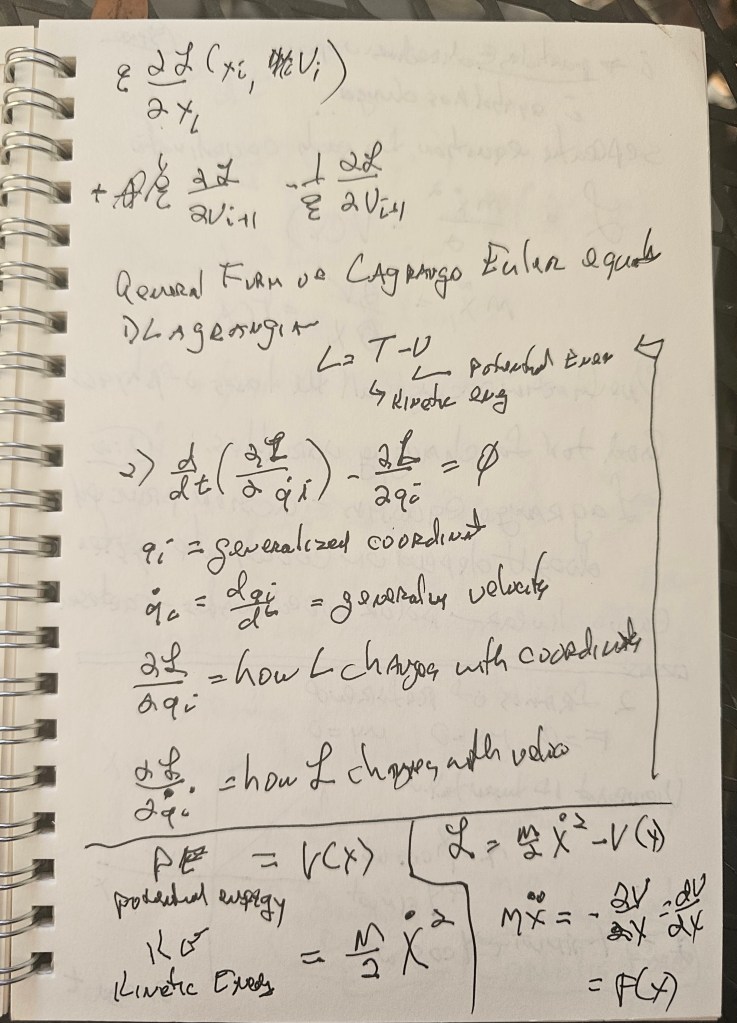 ε ∂ℒ/∂x_i (x_i, V_i)
+ 1/ε ∂ℒ/∂V_{i+1} - 1/ε ∂ℒ/∂V_{i+1}
General Form of Lagrange Euler equal
L = T - U
Potential Ener
Kinetic eng
2) d/dt (∂ℒ/∂q̇_i) - ∂ℒ/∂q_i = 0
q_i = generalized coordinat
q̇_i = dq_i/dt = velocity
∂ℒ/∂q_i = how L changes with coordinate
∂ℒ/∂q̇_i = how ℒ changes with veloc
PE = V(x)
potential energy
KE = m/2 ẋ²
Kinetic Energy
ℒ = m/2 ẋ² - V(x)
mẍ = - ∂V/∂x = dV/dx
= F(x)